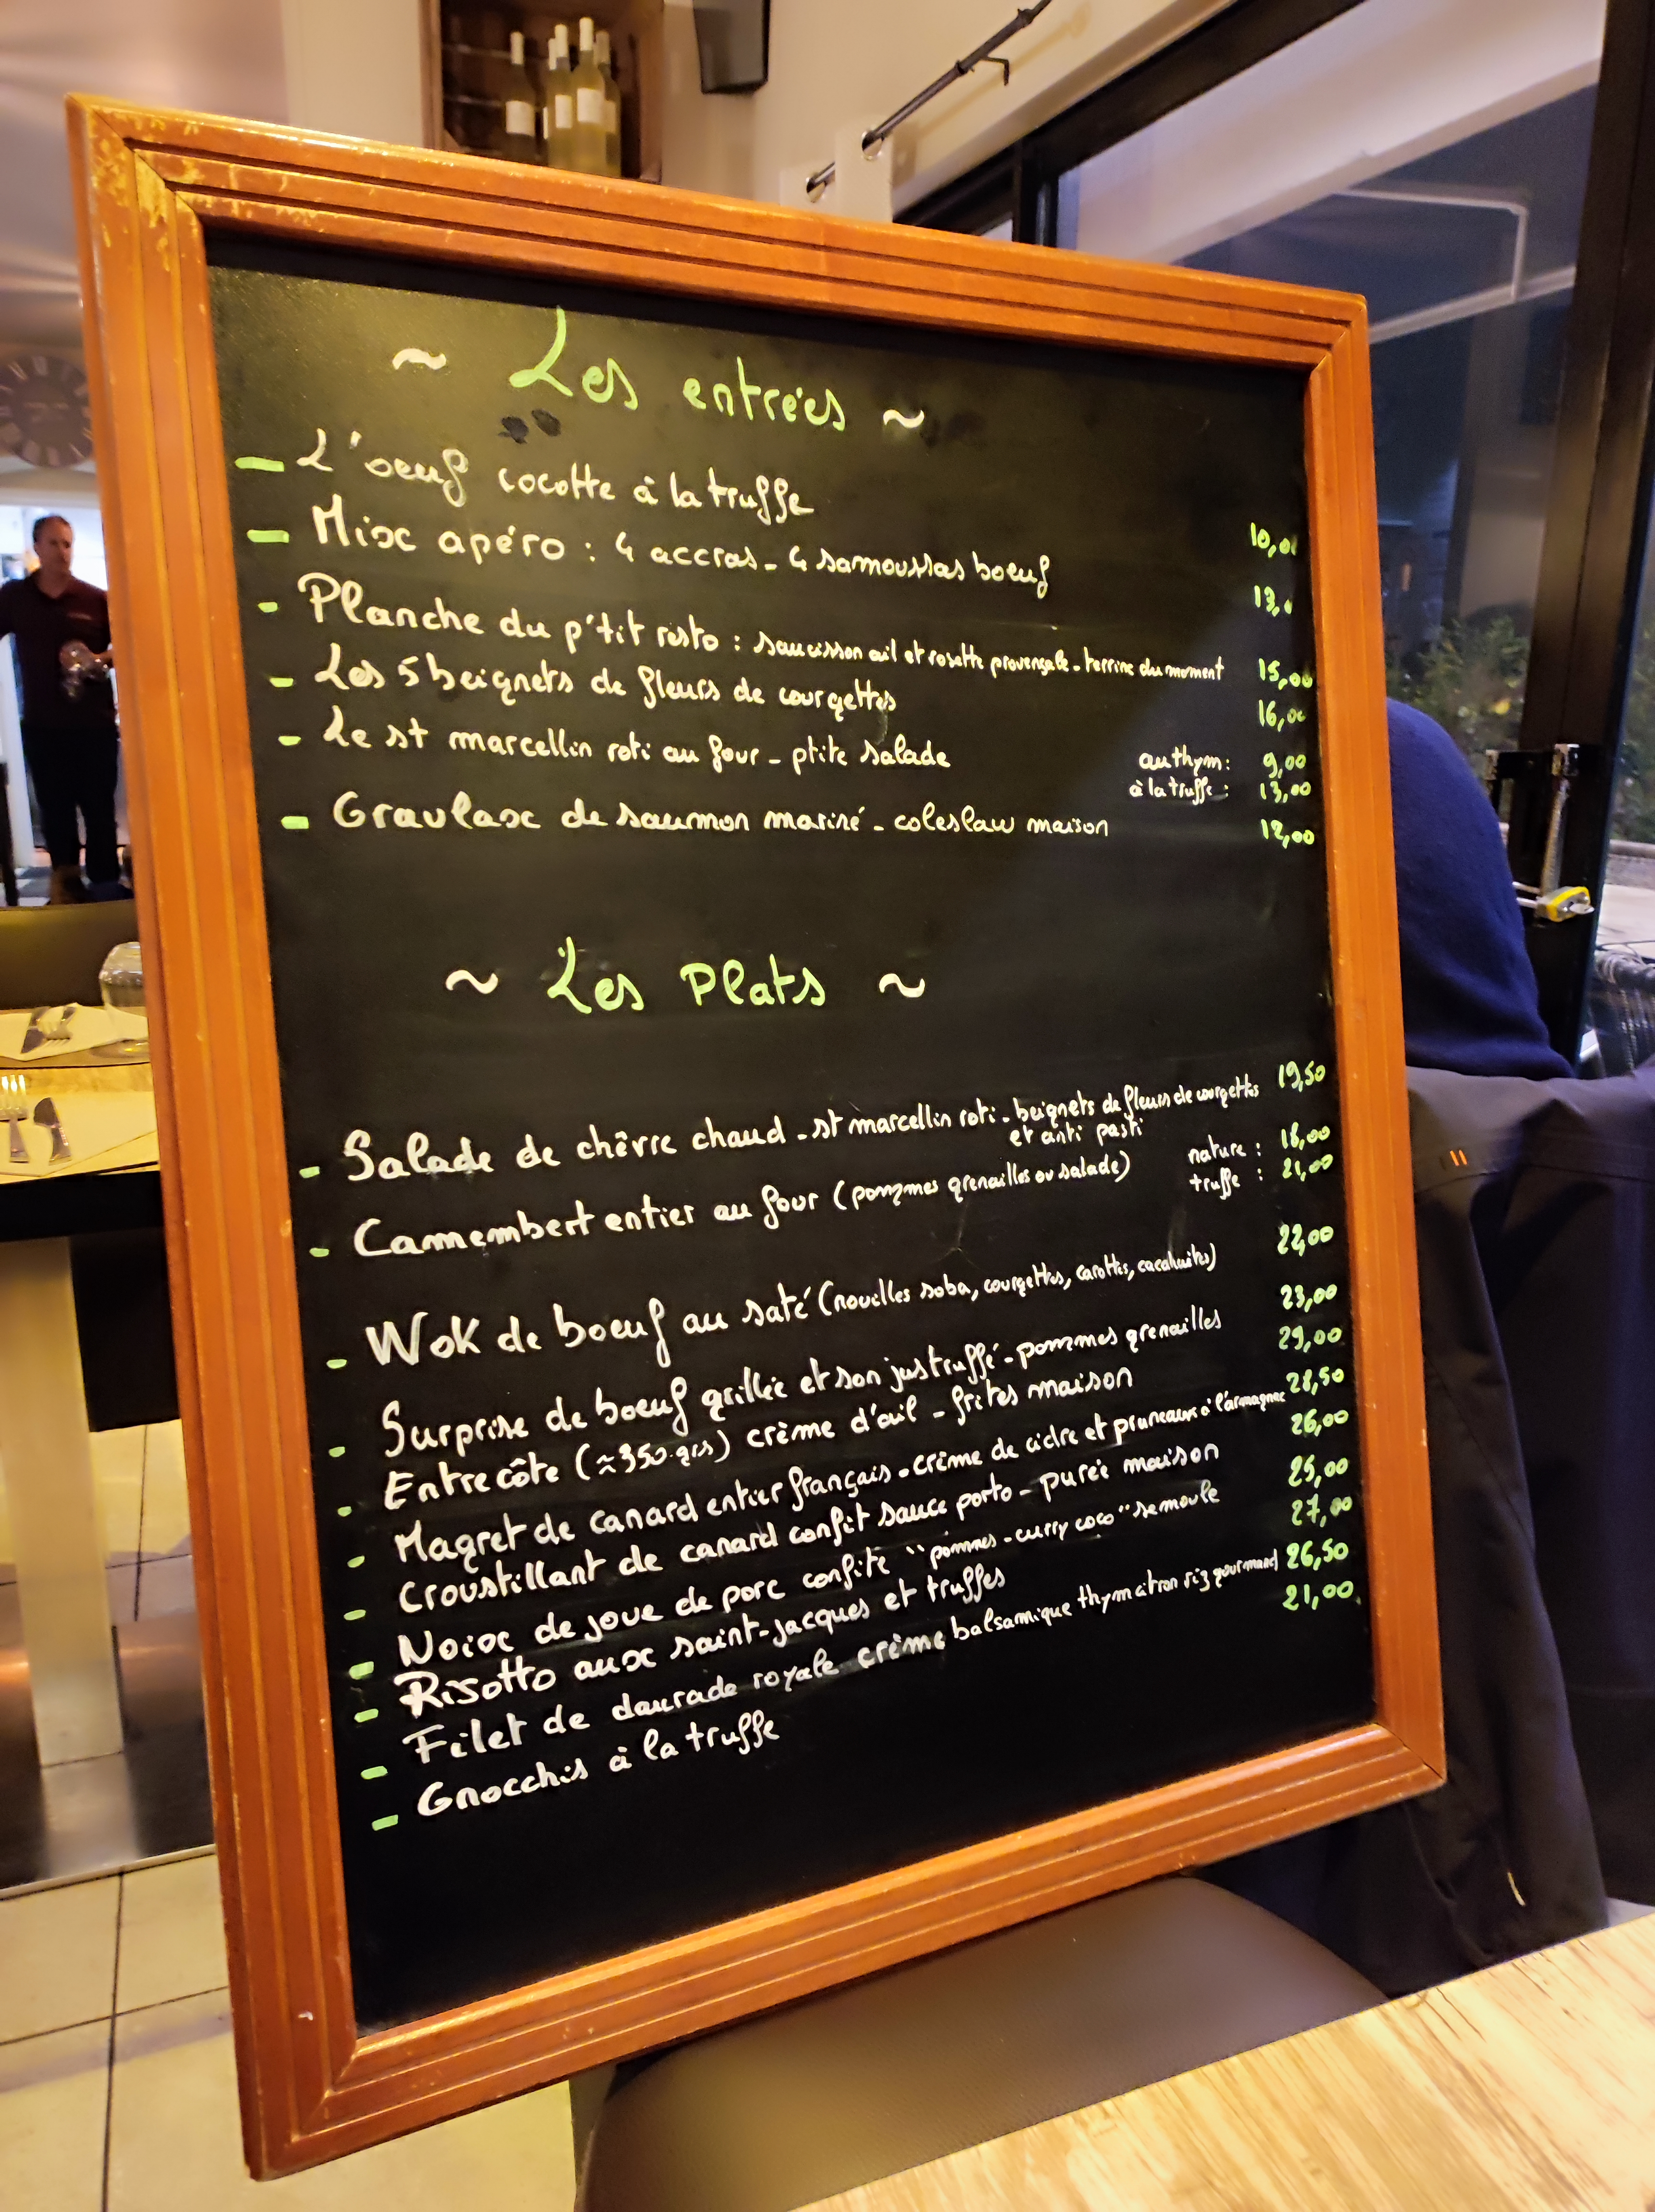 ~ Les entrées ~
- L'oeuf cocotte à la truffe 10,00
- Mix apéro : 4 accras - 4 samoussas boeuf 13,00
- Planche du p'tit resto : saucisson ail et rosette provençale - terrine du moment 15,00
- Les 5 beignets de fleurs de courgettes 16,00
- Le st marcellin roti au four - ptite salade au thym : 9,00
à la truffe : 13,00
- Gravlax de saumon mariné - coleslaw maison 12,00
~ Les Plats ~
- Salade de chèvre chaud - st marcellin roti - beignets de fleurs de courgettes 19,50
et anti pasti
- Camembert entier au four (pommes grenailles ou salade) nature : 18,00
truffe : 21,00
- Wok de boeuf au saté (nouilles soba, courgettes, carottes, cacahuètes) 22,00
- Surprise de boeuf grillée et son jus truffé - pommes grenailles 23,00
- Entrecôte (≈350 grs) crème d'ail - frites maison 29,00
- Magret de canard entier français - crème de cidre et pruneaux à l'armagnac 28,50
- Croustillant de canard confit sauce porto - purée maison 26,00
- Noix de joue de porc confite "pommes - curry coco" semoule 25,00
- Risotto aux saint-jacques et truffes 27,00
- Filet de daurade royale crème balsamique thym citron riz gourmand 26,50
- Gnocchis à la truffe 21,00